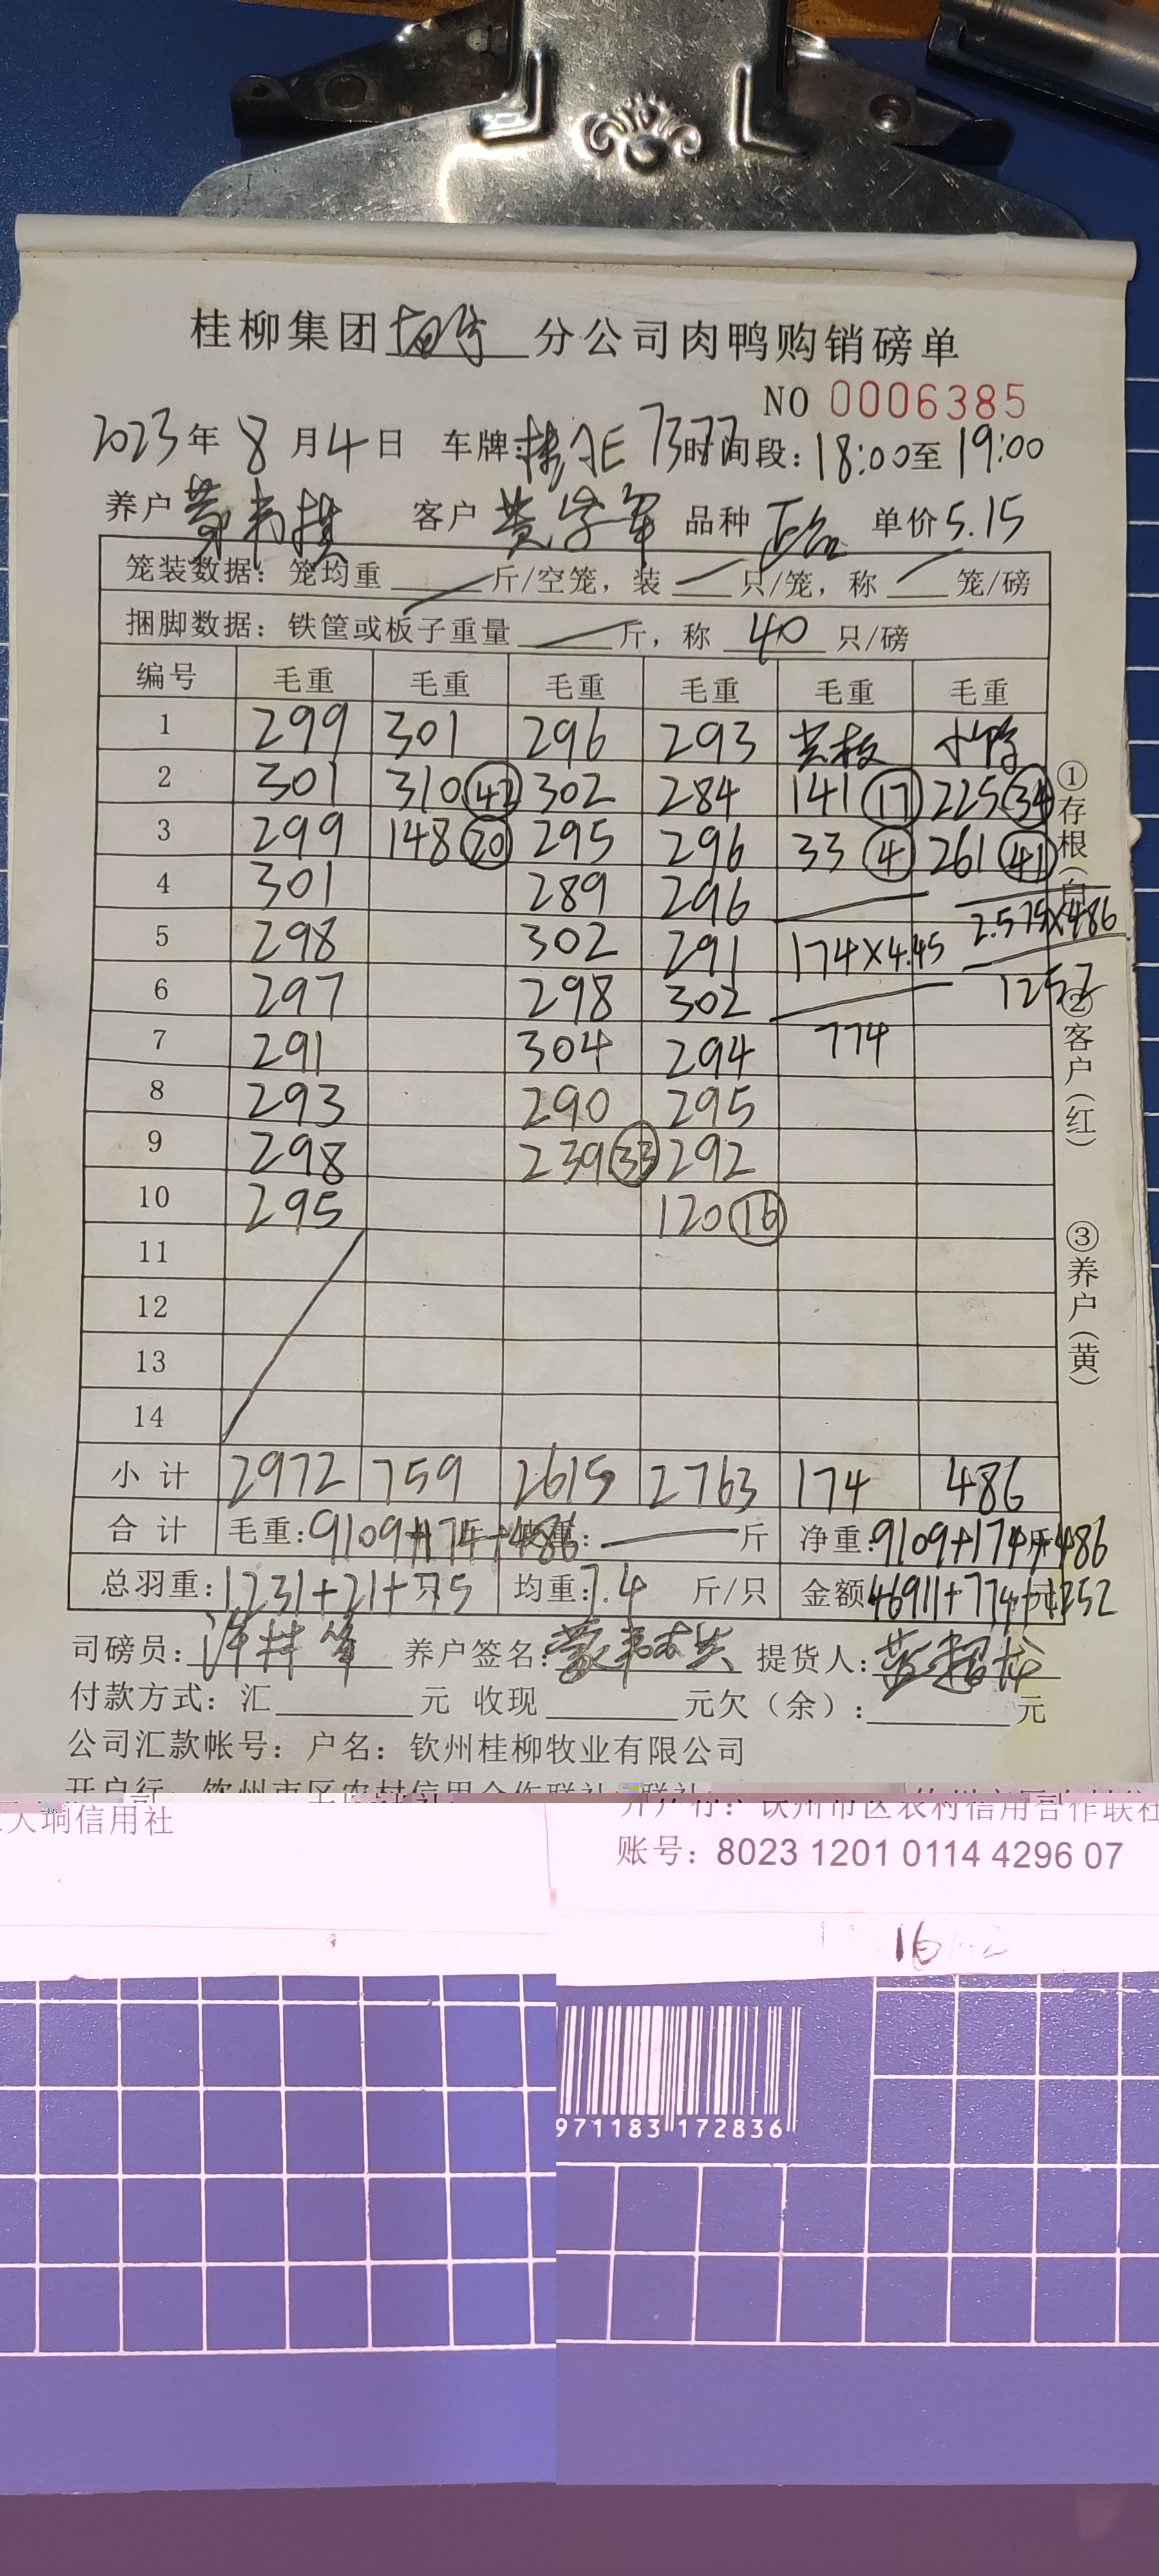 桂柳集团 分公司肉鸭购销磅单
NO 0006385
2023年 8 月 4 日 车牌: 7377 时间段: 18:00至 19:00
养户 客户 黄 军 品种 正品 单价 5.15
笼装数据: 笼均重 斤/空笼, 装 只/笼, 称 笼/磅
捆脚数据: 铁筐或板子重量 斤, 称 40 只/磅
编号 毛重 毛重 毛重 毛重 毛重 毛重
1 299 301 296 293
2 301 310 302 284 141 17 225 34
3 299 148 20 295 296 33 4 261 41
4 301 289 296
5 298 302 291 174×4.45 2.575×486
6 297 298 302 1252
7 291 304 294 774
8 293 290 295
9 298 239 33 292
10 295 120 16
11
12
13
14
小计 2972 759 2615 2763 174 486
合计 毛重: 9109+174+486 斤 净重: 9109+174+486
总羽重: 1231+21+75 只 均重: 7.4 斤/只 金额 46911+774+1252
司磅员: 养户签名: 提货人:
付款方式: 汇 元 收现 元欠(余): 元
公司汇款帐号: 户名: 钦州桂柳牧业有限公司
开户行: 钦州市区农村信用合作联社
大垌信用社
账号: 8023 1201 0114 4296 07
16
971183 172836
①存根(白)
②客户(红)
③养户(黄)